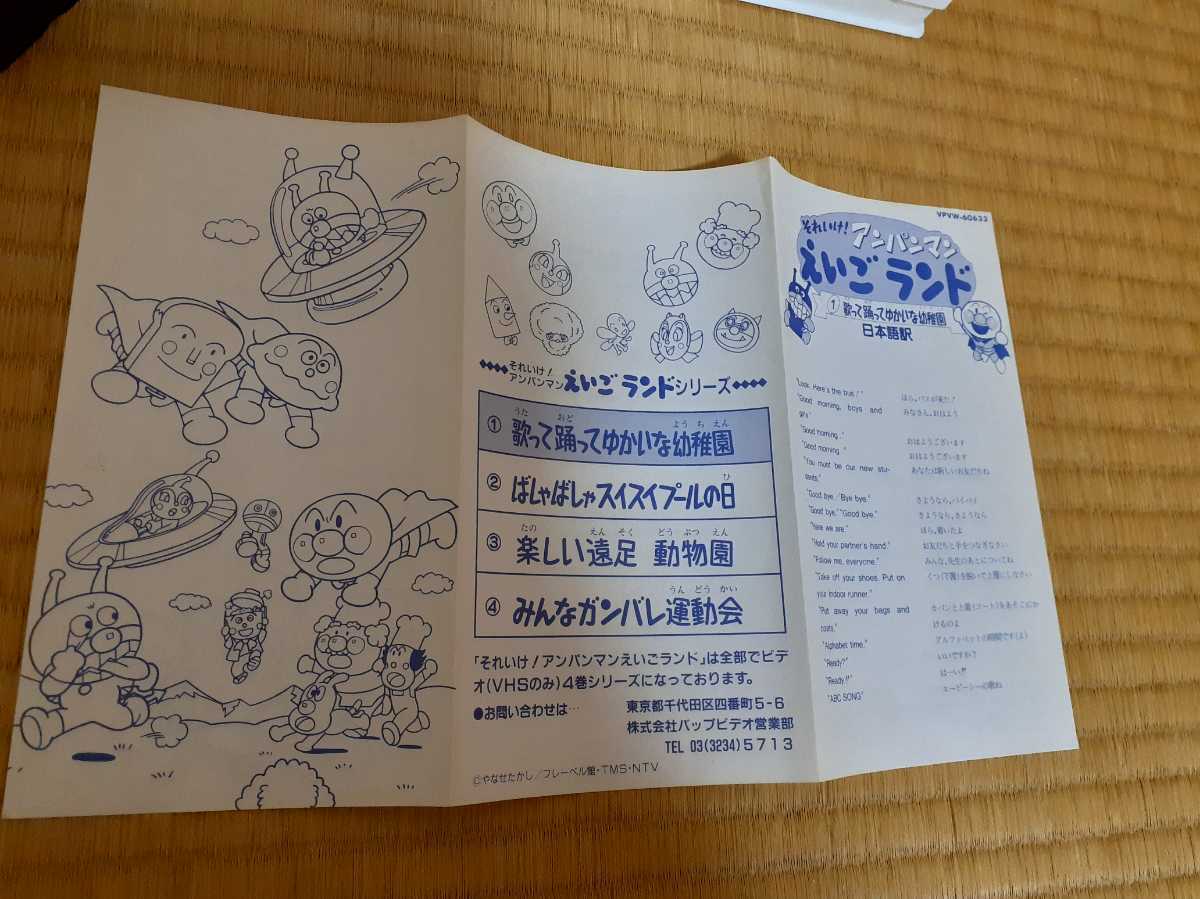 それいけ!
アンパンマン えいごランドシリーズ
① 歌って踊ってゆかいな幼稚園
うた おど ようちえん
② ばしゃばしゃスイスイプールの日
ひ
③ 楽しい遠足 動物園
たの えんそく どうぶつえん
④ みんなガンバレ運動会
うんどうかい
「それいけ!アンパンマンえいごランド」は全部でビデ
オ(VHSのみ)4巻シリーズになっております。
●お問い合わせは… 東京都千代田区四番町5-6
株式会社バップビデオ営業部
TEL 03(3234)5713
©やなせたかし/フレーベル館・TMS・NTV
VPVW-60633
それいけ!アンパンマン
えいごランド
① 歌って踊ってゆかいな幼稚園
日本語訳
"Look. Here's the bus!" ほら。バスが来た!
"Good morning, boys and みなさん。おはよう
girls"
"Good morning." おはようございます
"Good morning." おはようございます
"You must be our new stu- あなたは新しいお友だちね
dents."
"Good bye."/"Bye bye." さようなら。バイバイ
"Good bye."/"Good bye." さようなら。さようなら
"Here we are." ほら。着いたよ
"Hold your partner's hand." お友だちと手をつなぎなさい
"Follow me, everyone." みんな。先生のあとについてね
"Take off your shoes. Put on くつ(下履)を脱いで上履にしなさい
your indoor runner."
"Put away your bags and カバンと上着(コート)をあそこにか
coats." けるのよ
"Alphabet time." アルファベットの時間です(よ)
"Ready?" いいですか?
"Ready!!" はーい!!
"ABC SONG" エービーシーの歌ね